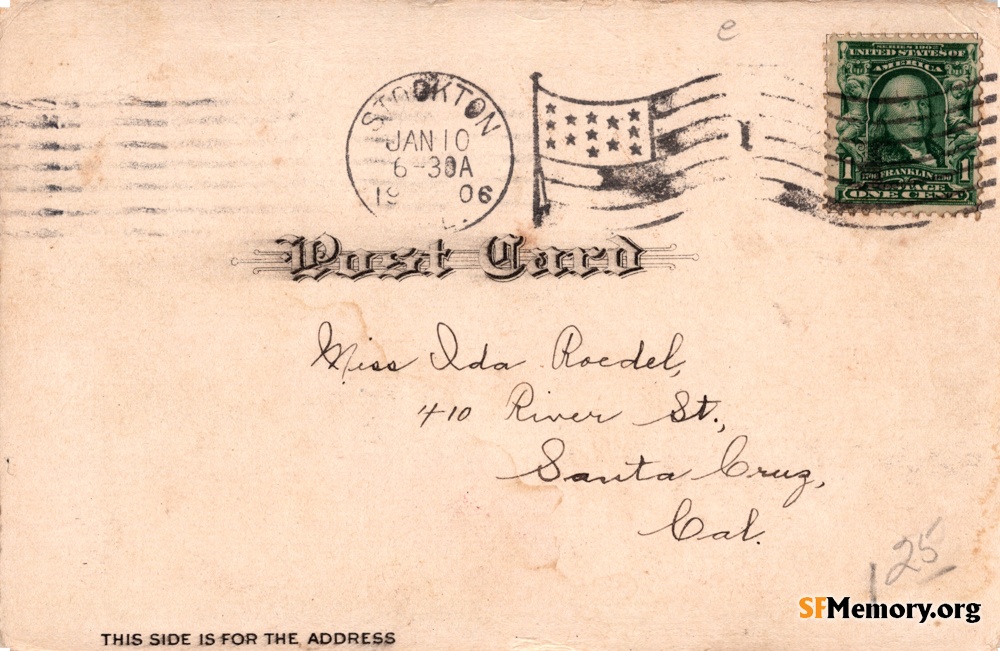 e
SERIES 1902
UNITED STATES OF
AMERICA
STOCKTON
JAN 10
6-30A
19 06
1 FRANKLIN 1
POSTAGE
ONE CENT
Post Card
Miss Ida Roedel,
410 River St.,
Santa Cruz,
Cal.
1 25
SFMemory.org
THIS SIDE IS FOR THE ADDRESS